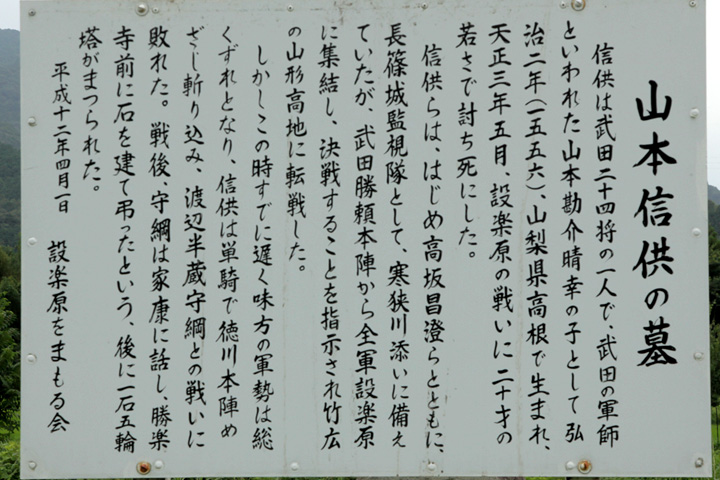 山本信供の墓
信供は武田二十四将の一人で、武田の軍師
といわれた山本勘介晴幸の子として弘
治二年(一五五六)、山梨県高根で生まれ、
天正三年五月、設楽原の戦いに二十才の
若さで討ち死にした。
信供らは、はじめ高坂昌澄らとともに、
長篠城監視隊として、寒狭川添いに備え
ていたが、武田勝頼本陣から全軍設楽原
に集結し、決戦することを指示され竹広
の山形高地に転戦した。
しかしこの時すでに遅く味方の軍勢は総
くずれとなり、信供は単騎で徳川本陣め
ざし斬り込み、渡辺半蔵守綱との戦いに
敗れた。戦後、守綱は家康に話し、勝楽
寺前に石を建て弔ったという、後に一石五輪
塔がまつられた。
平成十二年四月一日
設楽原をまもる会